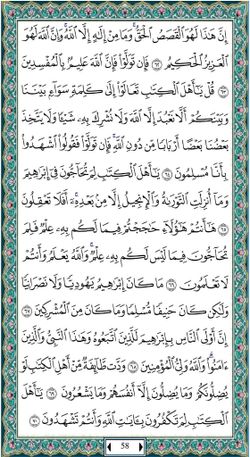 إِنَّ هَٰذَا لَهُوَ ٱلْقَصَصُ ٱلْحَقُّ ۚ وَمَا مِنْ إِلَٰهٍ إِلَّا ٱللَّهُ ۚ وَإِنَّ ٱللَّهَ لَهُوَ
ٱلْعَزِيزُ ٱلْحَكِيمُ ﴿٦٢﴾ فَإِن تَوَلَّوْا۟ فَإِنَّ ٱللَّهَ عَلِيمٌۢ بِٱلْمُفْسِدِينَ
﴿٦٣﴾ قُلْ يَٰٓأَهْلَ ٱلْكِتَٰبِ تَعَالَوْا۟ إِلَىٰ كَلِمَةٍ سَوَآءٍۭ بَيْنَنَا
وَبَيْنَكُمْ أَلَّا نَعْبُدَ إِلَّا ٱللَّهَ وَلَا نُشْرِكَ بِهِۦ شَيْـًٔا وَلَا يَتَّخِذَ
بَعْضُنَا بَعْضًا أَرْبَابًا مِّن دُونِ ٱللَّهِ ۚ فَإِن تَوَلَّوْا۟ فَقُولُوا۟ ٱشْهَدُوا۟
بِأَنَّا مُسْلِمُونَ ﴿٦٤﴾ يَٰٓأَهْلَ ٱلْكِتَٰبِ لِمَ تُحَآجُّونَ فِىٓ إِبْرَٰهِيمَ
وَمَآ أُنزِلَتِ ٱلتَّوْرَىٰةُ وَٱلْإِنجِيلُ إِلَّا مِنۢ بَعْدِهِۦٓ ۚ أَفَلَا تَعْقِلُونَ
﴿٦٥﴾ هَٰٓأَنتُمْ هَٰٓؤُلَآءِ حَٰجَجْتُمْ فِيمَا لَكُم بِهِۦ عِلْمٌ فَلِمَ
تُحَآجُّونَ فِيمَا لَيْسَ لَكُم بِهِۦ عِلْمٌ ۚ وَٱللَّهُ يَعْلَمُ وَأَنتُمْ
لَا تَعْلَمُونَ ﴿٦٦﴾ مَا كَانَ إِبْرَٰهِيمُ يَهُودِيًّا وَلَا نَصْرَانِيًّا
وَلَٰكِن كَانَ حَنِيفًا مُّسْلِمًا وَمَا كَانَ مِنَ ٱلْمُشْرِكِينَ ﴿٦٧﴾
إِنَّ أَوْلَى ٱلنَّاسِ بِإِبْرَٰهِيمَ لَلَّذِينَ ٱتَّبَعُوهُ وَهَٰذَا ٱلنَّبِىُّ وَٱلَّذِينَ
ءَامَنُوا۟ ۗ وَٱللَّهُ وَلِىُّ ٱلْمُؤْمِنِينَ ﴿٦٨﴾ وَدَّت طَّآئِفَةٌ مِّنْ أَهْلِ ٱلْكِتَٰبِ لَوْ
يُضِلُّونَكُمْ وَمَا يُضِلُّونَ إِلَّآ أَنفُسَهُمْ وَمَا يَشْعُرُونَ ﴿٦٩﴾ يَٰٓأَهْلَ
ٱلْكِتَٰبِ لِمَ تَكْفُرُونَ بِـَٔايَٰتِ ٱللَّهِ وَأَنتُمْ تَشْهَدُونَ ﴿٧٠﴾
58